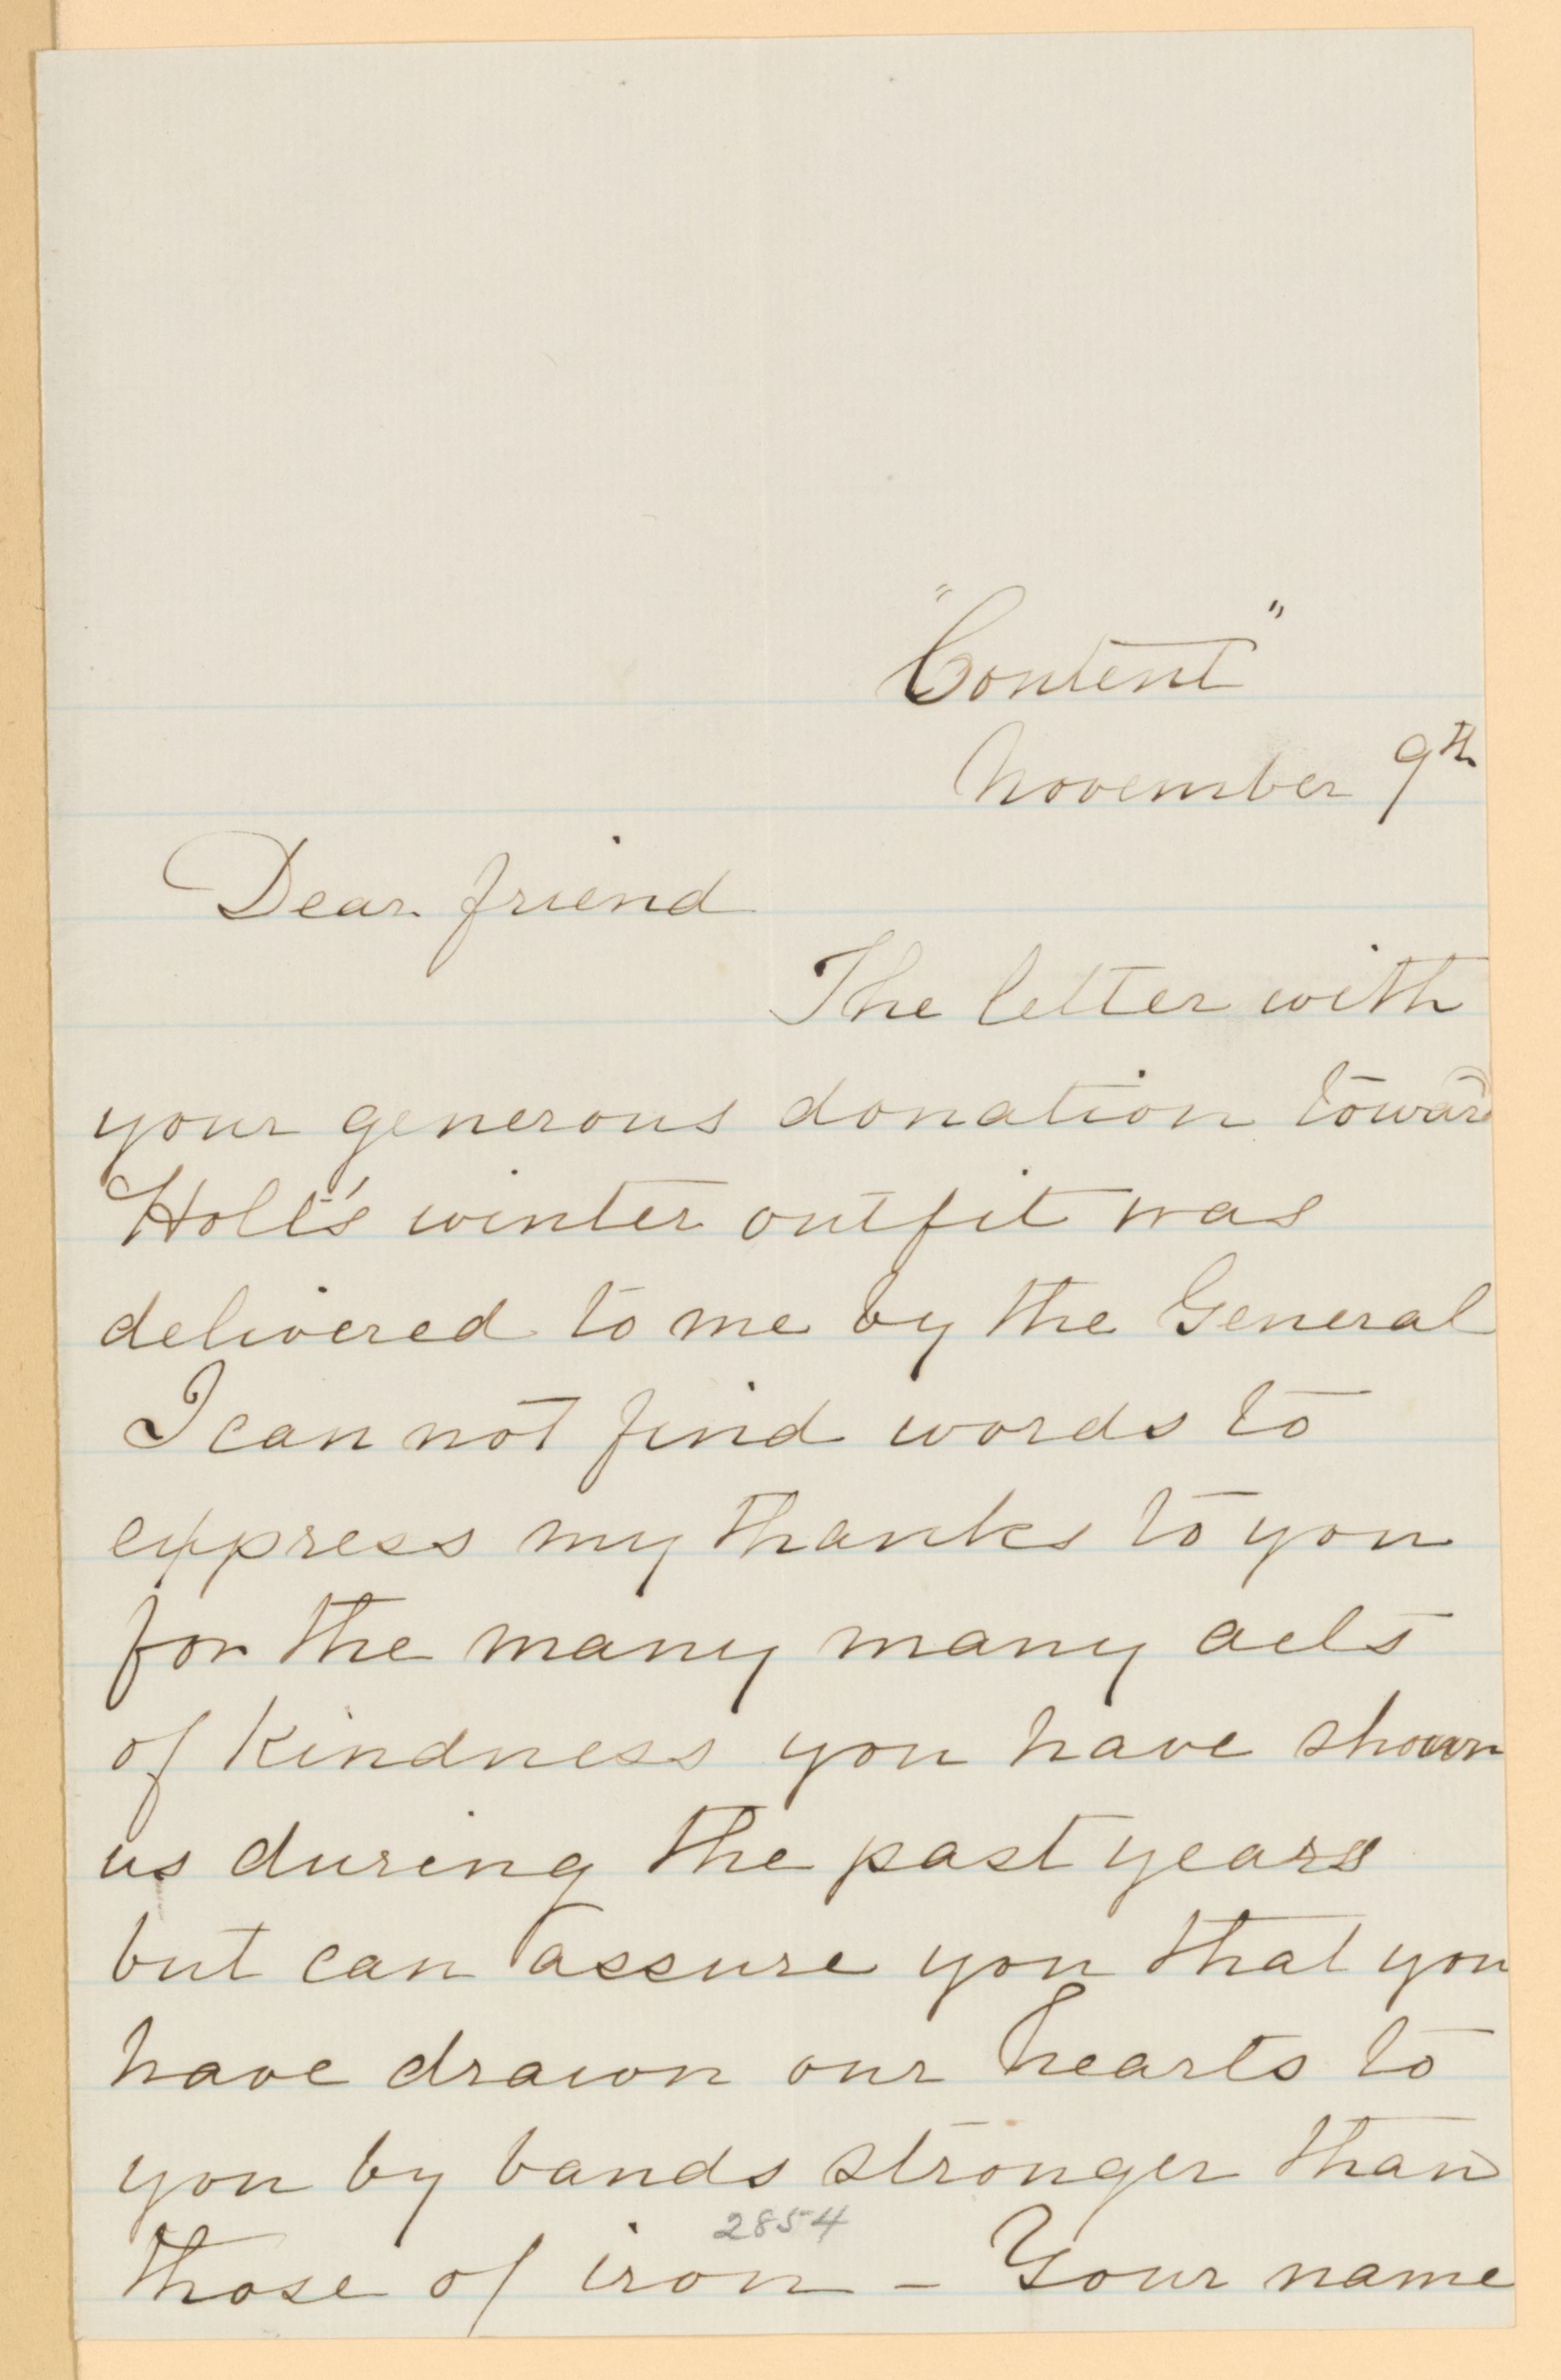 "Content"
November 9th
Dear friend
The letter with
your generous donation toward
Holt's winter outfit was
delivered to me by the General
I can not find words to
express my thanks to you
for the many many acts
of kindness you have shown
us during the past years
but can assure you that you
have drawn our hearts to
you by bands stronger than
2854
those of iron - Your name